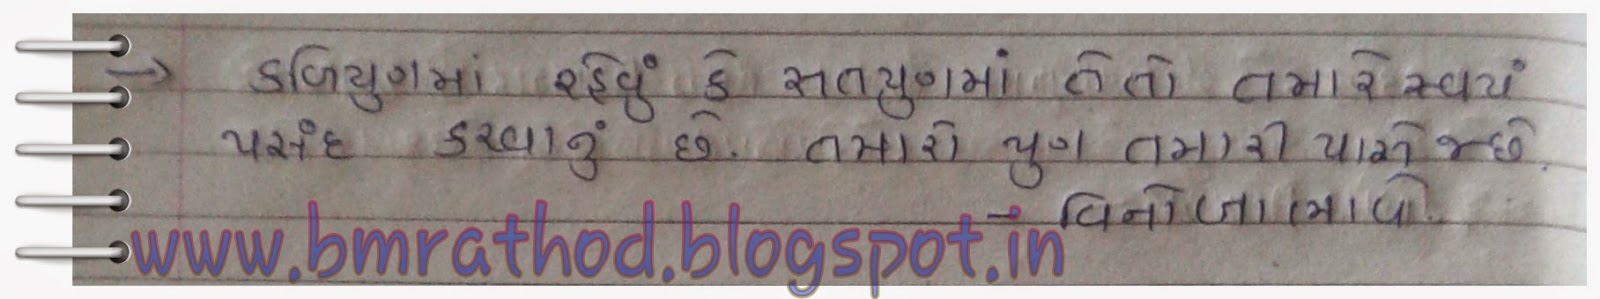 → કળિયુગમાં રહેવું કે સતયુગમાં તે તો તમારે સ્વયં
પસંદ કરવાનું છે. તમારો યુગ તમારી પાસે જ છે.
- વિનોબા ભાવે.
www.bmrathod.blogspot.in